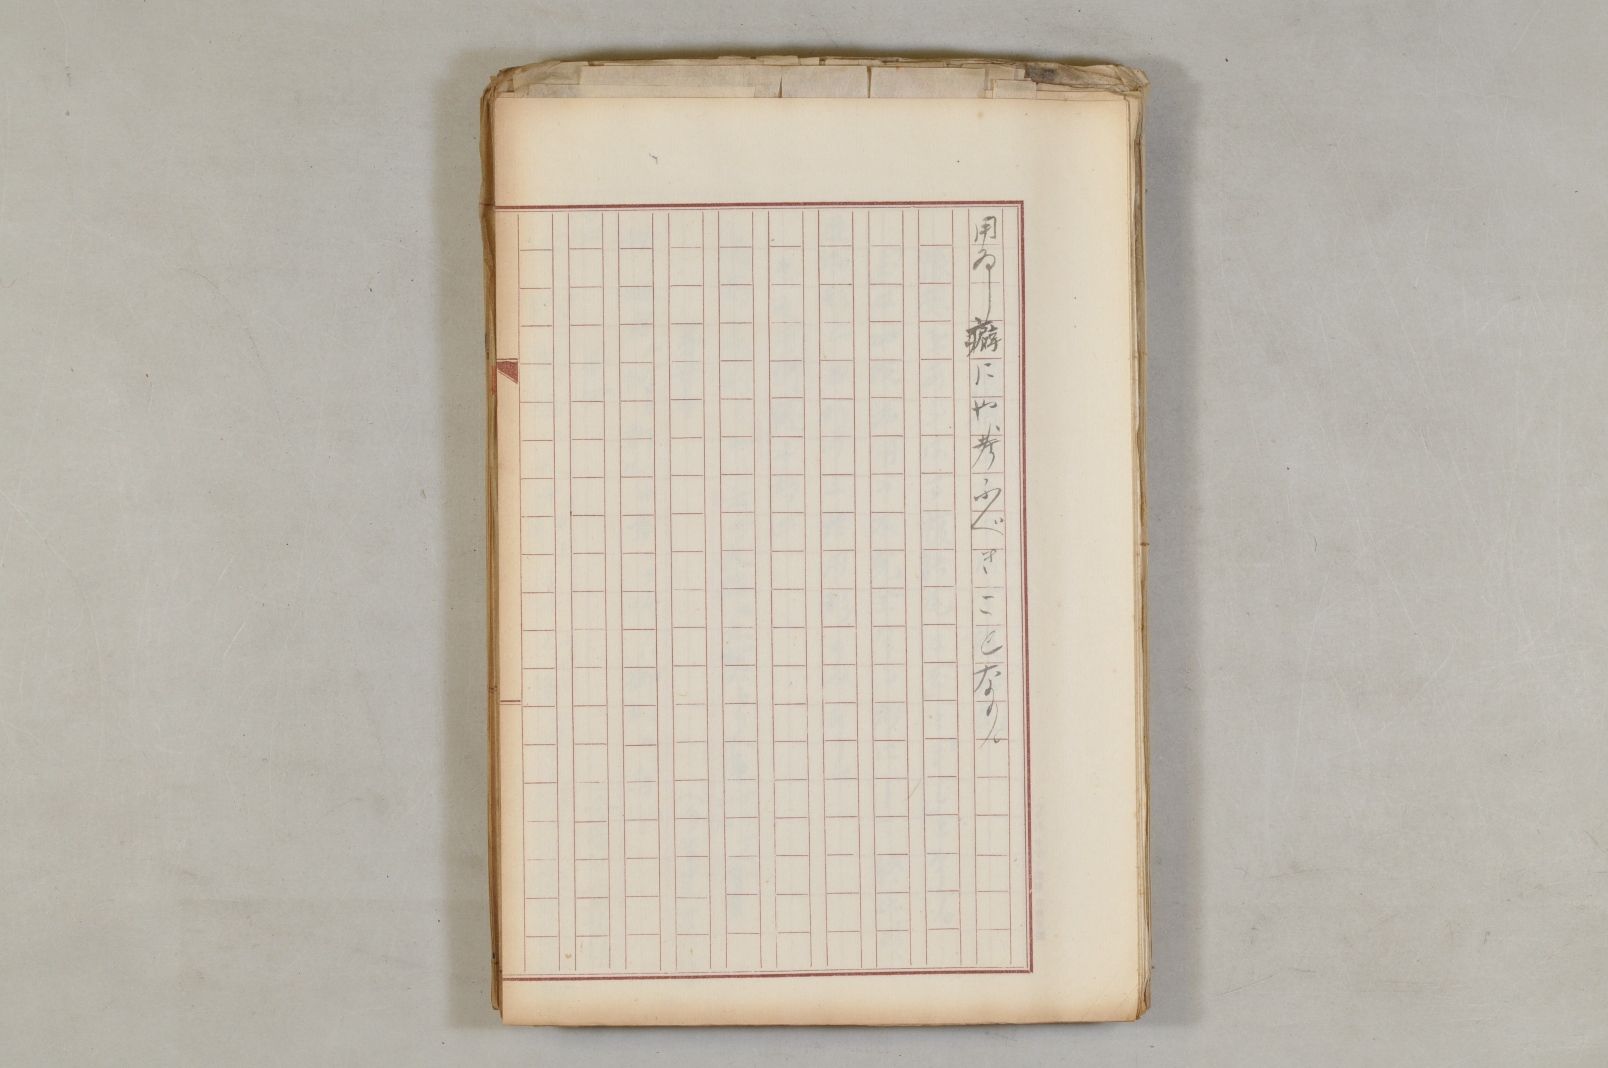 用ゐし癖にや考ふべきことなりん